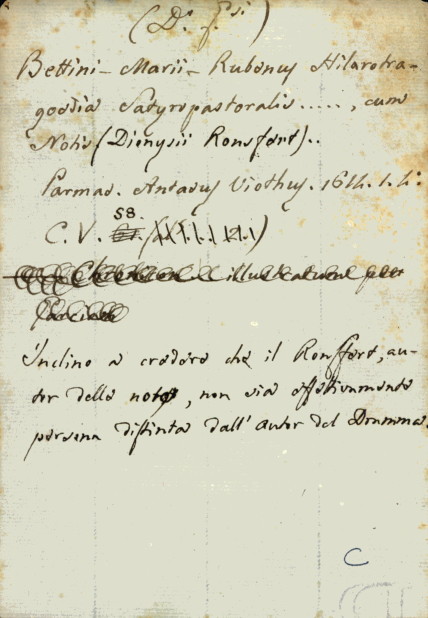 (D.s f.si)
Bettini – Marii – Rubenus Hilarotra-
goedia Satyropastoralis ....., cum
Notis (Dionysii Ronsfert)..
Parmae. Antaeus Viothus. 1614. 1. 4:
C. V. 58.
Inclino a credere che il Ronsfert, au-
tor delle note, non sia effettivamente
persona distinta dall' autor del Dramma.
C